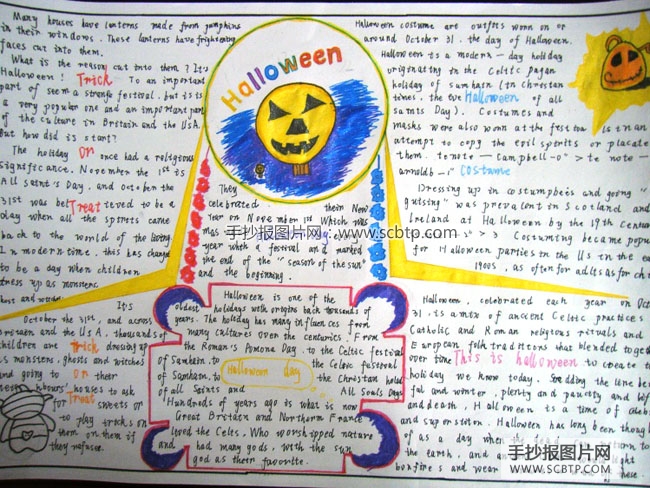 Many houses have lanterns made from pumpkins
in their windows. These lanterns have frightening
faces cut into them.
What is the reason cut into them? It's
Halloween! Trick To an important
part of seem a strange festival. but is is
a very popular one and an important part
of the culture in Britain and the USA.
But how did is start?
The holiday Or once had a religious
significance. November the 1st is
All saint's Day, and october the
31st was bel Treat ieved to be a
day when all the spirits came
back to the world of the living
In modern time, this has changed
to be a day when children
dress up as monsters.
ghost and
It's
October the 31st, and across
Britain and the USA, thousands of
children are Trick dressing up
as monsters, ghosts and witches
and going to Or their
neighbours' houses to ask
for Treat sweets or
to play tricks on
them on them if
they refuse.
Halloween
They
celebrated their New
Year on November 1st which was
mas
year with a festival and marked
the end of the "season of the sun"
and the beginning.
手抄报图片网:www.scbtp.com
Halloween is one of the
oldest holidays with origins back thousands of
years. The holiday has many influences from
many cultures over the centuries. From
the Roman's Pomona Day, to the Celtic festival
of Samhain. to the Celtic festival
of Samhain. to Halloween day the Christian holid
of all Saints and All Souls Days
Hundreds of years ago is what is now
Great Britain and Northern France
lived the Celts. Who worshipped nature
and had many gods, with the sun
god as their favorite.
Halloween costume are outfits wonn on or
around October 31. the day of Halloween.
Halloween is a modern-day holiday
originating in the Celtic pagan
holiday of samhain (in Christian
times, the eve Halloween of all
saints Day). Costumes and
masks were also wonn at the festival is in an
attempt to copy the evil spirits or placate
them. to note - Campbell-0" > te note -
arnoldb-1" Costume
Dressing up in costumpbeis and going "
guising" was prevalent in Scotland and
Ireland at Halloween by the 19th Century
3" > 3 Costuming became popu
for Halloween parties in the US in the ea
1900s, as often for adults as for ch
Halloween, celebrated each year on Oct
31. is a mix of ancient Celtic practices
Catholic and Roman religious rituals and
European folk traditions that blended toget
over time This is halloween to create t
holiday we know today. Sadding the line be
ful and winter, plenty and paucity and lif
and death, Halloween is a time of celeb
and superstition. Halloween has long been though
of as a day when
the earth, and
bonfires and wear these.
手抄报图片网
WWW.SCBTP.COM